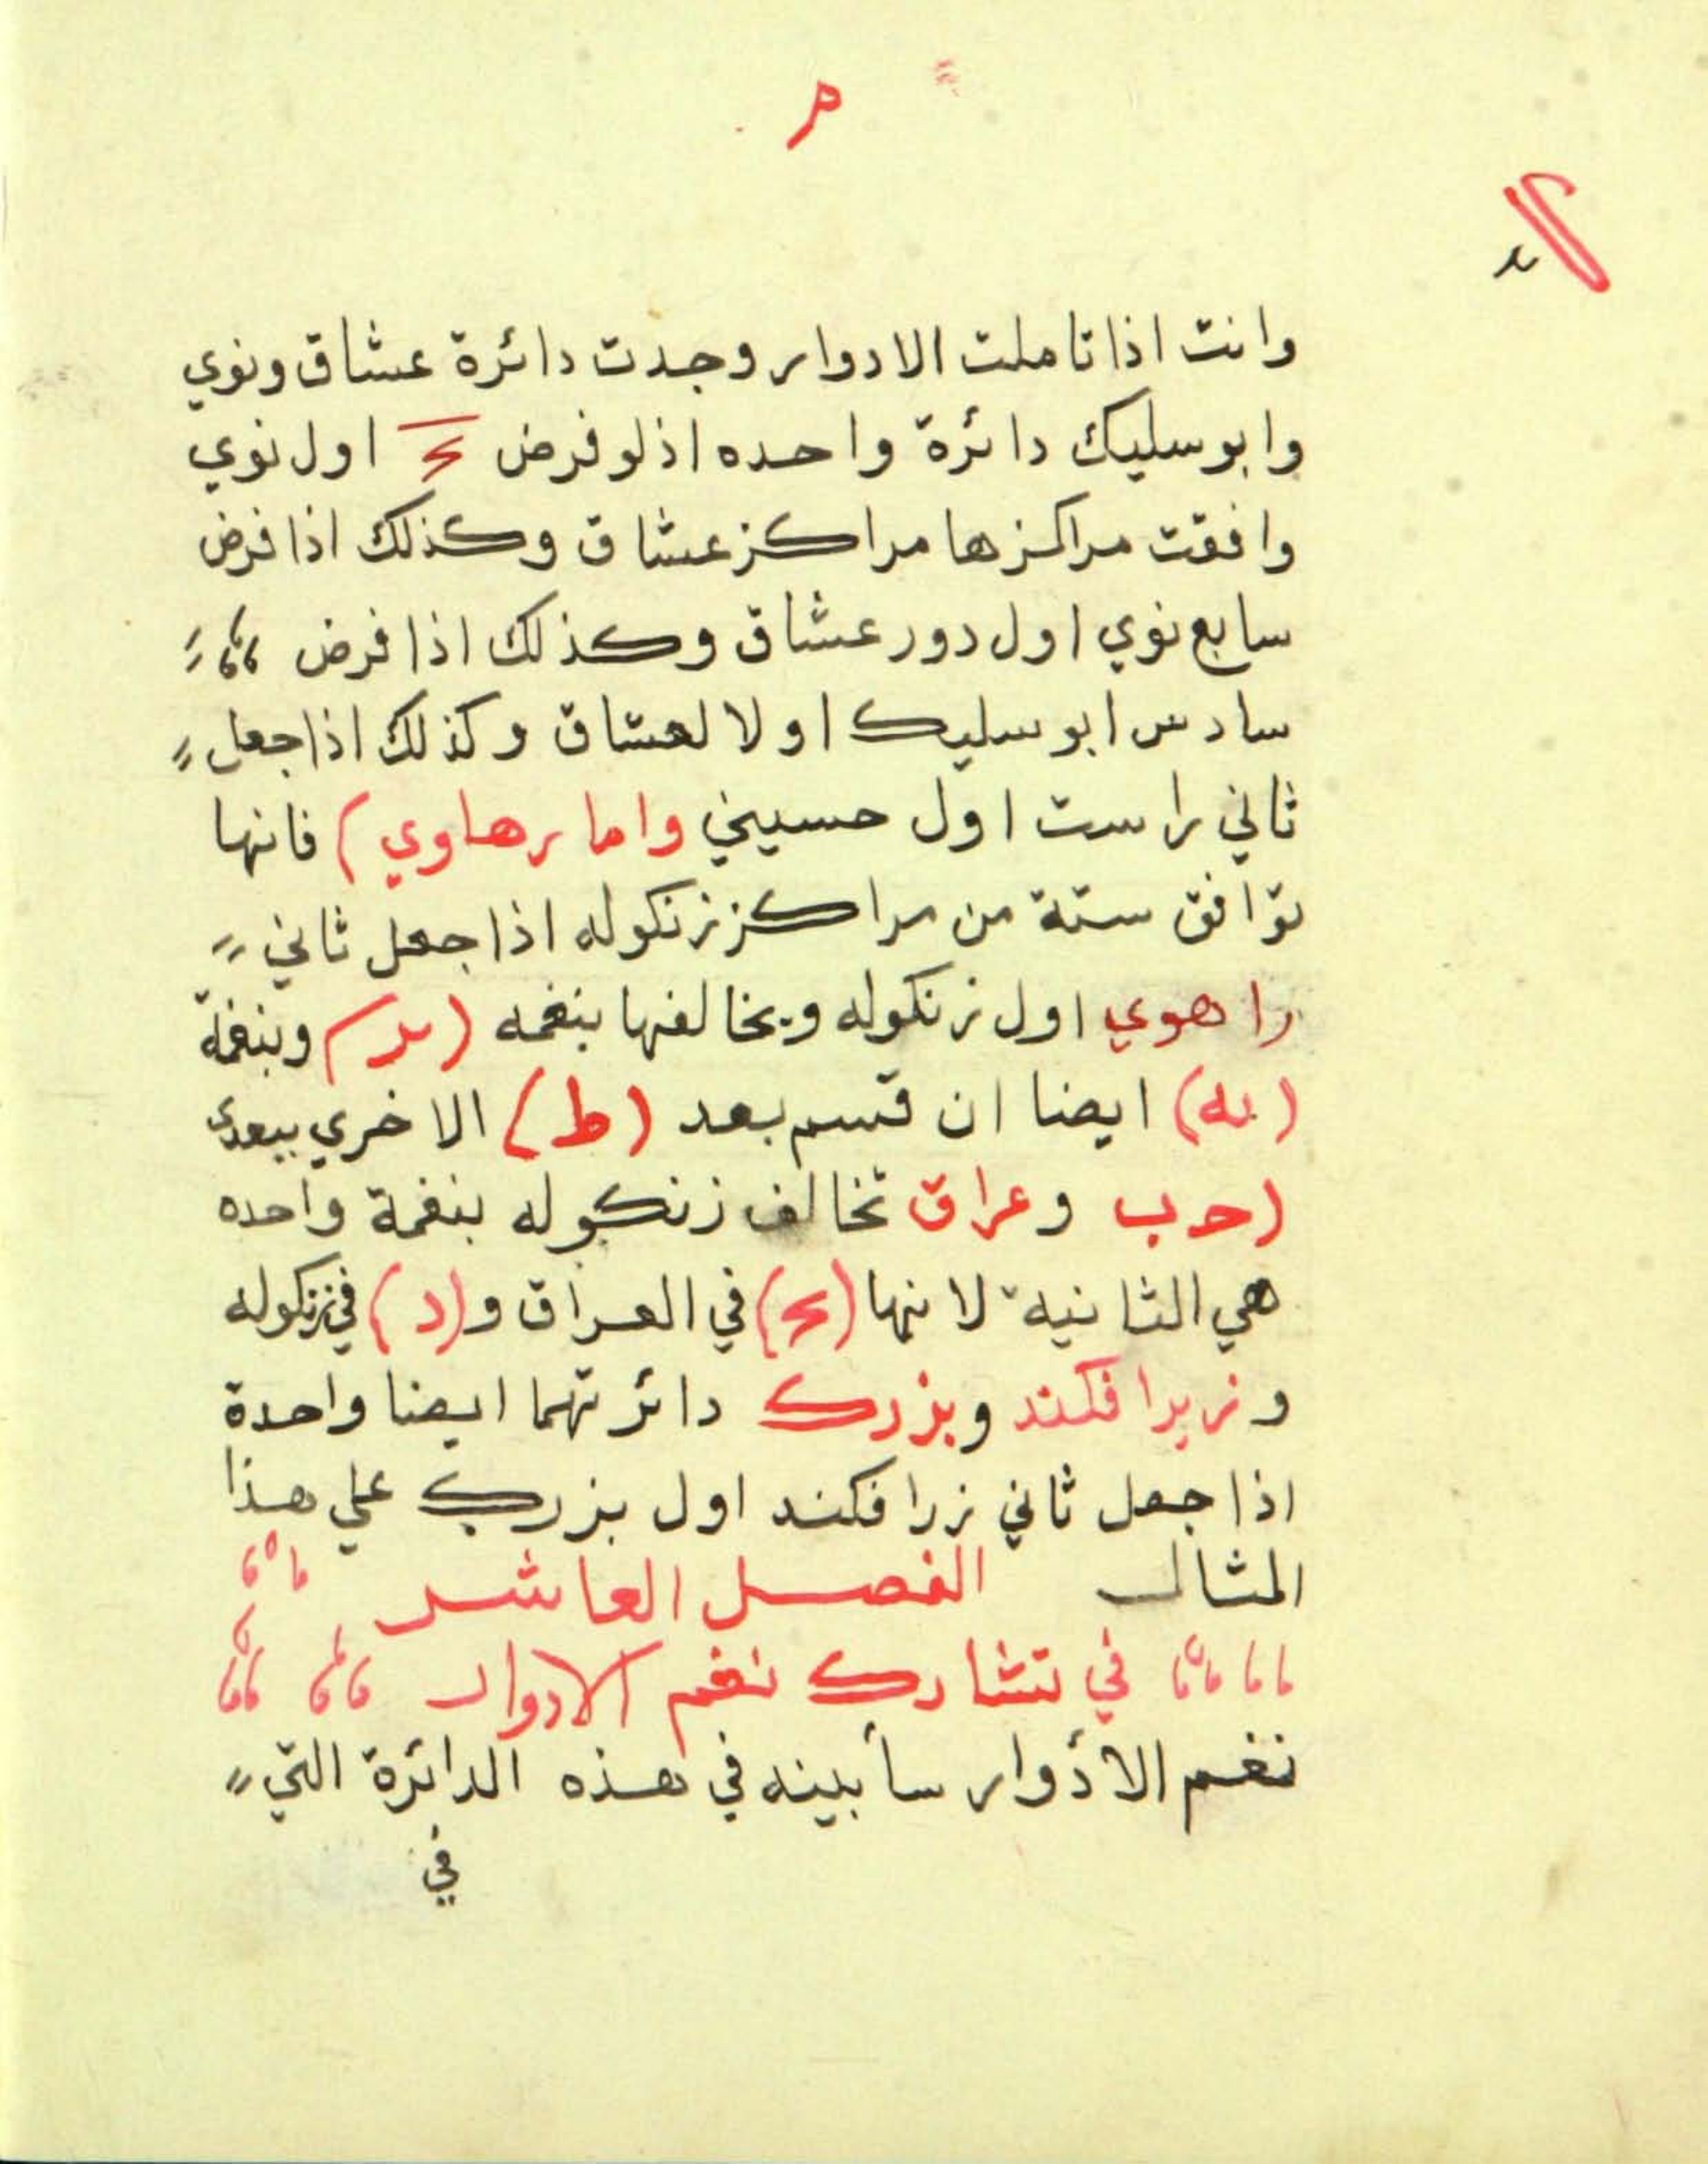 وانت اذا تاملت الادوار وجدت دائرة عشاق ونوي
وابوسليك دائرة واحده اذ لو فرض ح اول نوي
وافقت مراكزها مراكز عشاق وكذلك اذا فرض
سابع نوي اول دور عشاق وكذلك اذا فرض
سادس ابوسليك اولا لعشاق وكذلك اذا جعل
ثاني راست اول حسيني واما رهاوي) فانها
توافق ستة من مراكز زنكوله اذا جعل ثاني
راهوي اول زنكوله ويخالفها بنغمه (يد) وبنغمة
(يه) ايضا ان قسم بعد (ط) الاخري ببعدي
(حـ ب وعراق تخالف زنكوله بنغمة واحده
هي الثانيه لانها (ح) في العراق و(د) في زنكوله
وزيرافكند وبزرك دائرتهما ايضا واحدة
اذا جعل ثاني زرافكند اول بزرك علي هذا
المثال الفصل العاشر
في تشارك نغم الادوار
نغم الأدوار سأبينه في هذه الدائرة التي
في